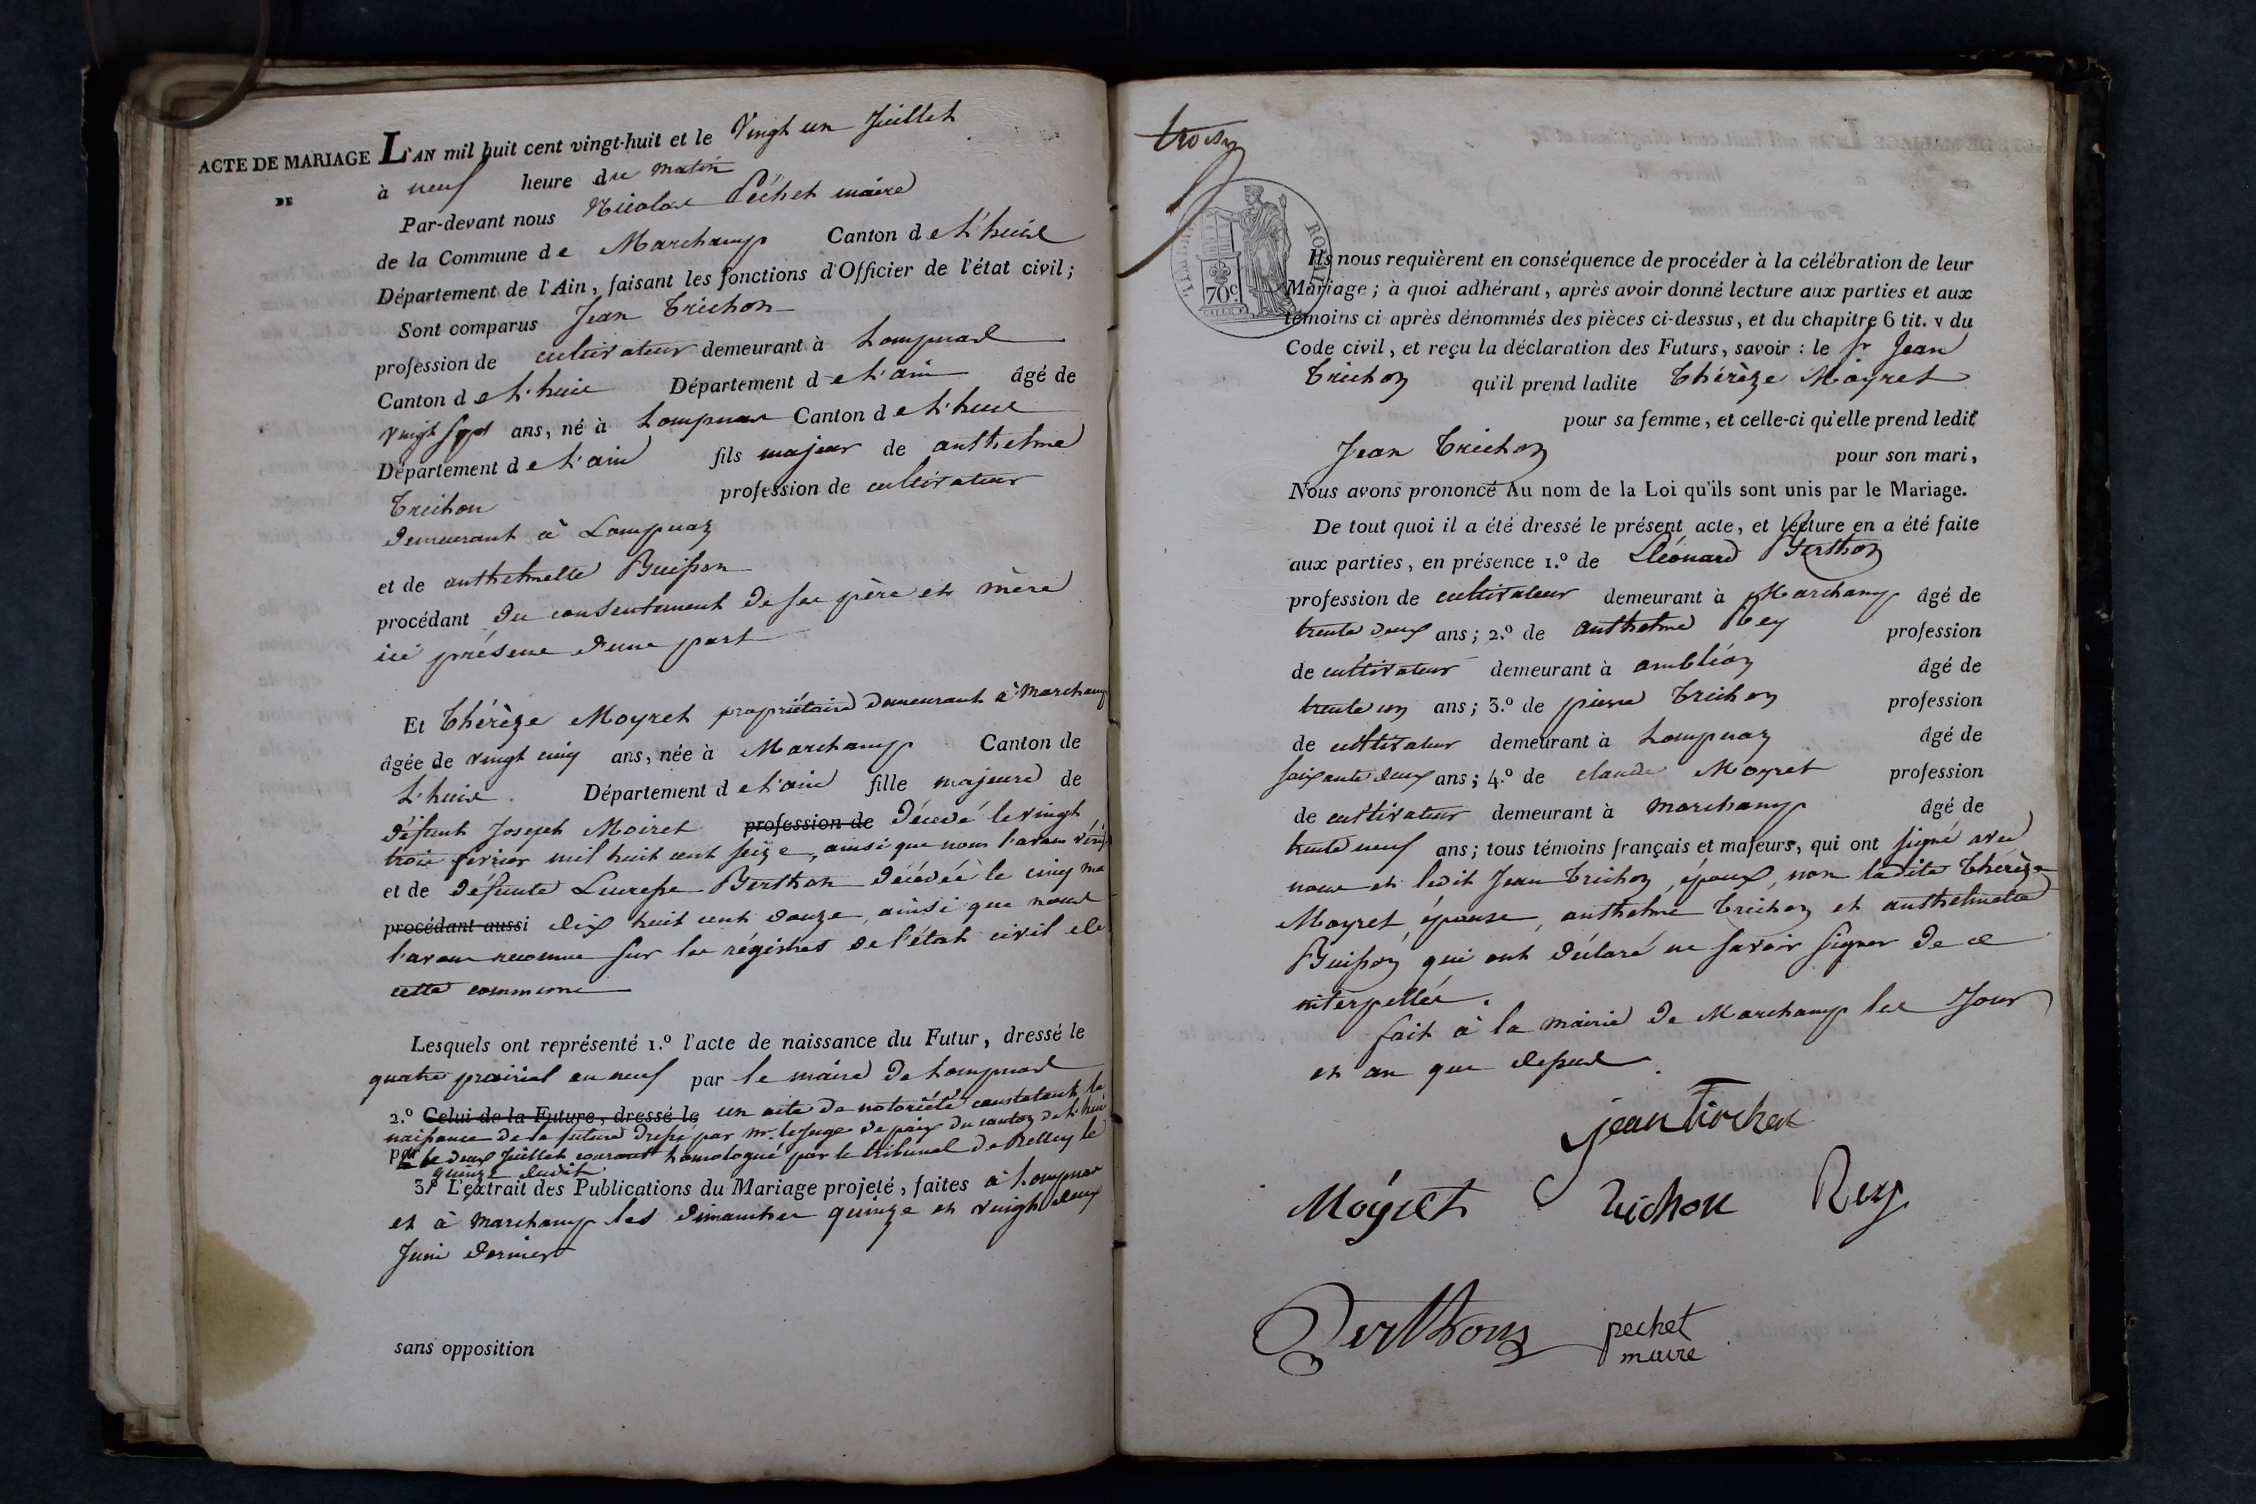 ACTE DE MARIAGE L'AN mil huit cent vingt-huit et le Vingt un Juillet
DE
à neuf heure du matin
Par-devant nous Nicolas Péchet maire
de la Commune de Marchamp Canton de L'huis
Département de l'Ain, faisant les fonctions d'Officier de l'état civil;
Sont comparus Jean Trichon
profession de cultivateur demeurant à Lompnas
Canton de L'huis Département de L'ain âgé de
vingt sept ans, né à Lompnas Canton de L'huis
Département de L'ain fils majeur de anthelme
Trichon profession de cultivateur
demeurant à Lompnaz
et de anthelmette Buisson
procédant du consentement de ses père et mère
ici présens d'une part
Et Thérèze Moyret propriétaire demeurant à Marchamp
âgée de vingt cinq ans, née à Marchamp Canton de
L'huis Département de L'ain fille majeure de
défunt Joseph Moiret profession de décédé le vingt
trois fevrier mil huit cent seize, ainsi que nous l'avons
et de défunte Lucresse Berthon décédée le cinq
procédant aussi dix huit cent douze, ainsi que nous
l'avons reconnu sur les régistres de l'état civil de
cette commune
Lesquels ont représenté 1.º l'acte de naissance du Futur, dressé le
quatre prairial an neuf par le maire de Lompnas
2.º Celui de la Future, dressé le un acte de notoriété constatant la
naissance de la future dressé par mr. le Juge de paix du canton de L'huis
par le deux Juillet courant homologué par le tribunal de Belley le
quinze dudit
3.º L'extrait des Publications du Mariage projeté, faites à Lompnas
et à Marchamp les dimanches quinze et vingt deux
Juin dernier
sans opposition
trois
TIMBRE ROYAL
70c.
Ils nous requièrent en conséquence de procéder à la célébration de leur
Mariage; à quoi adhérant, après avoir donné lecture aux parties et aux
témoins ci après dénommés des pièces ci-dessus, et du chapitre 6 tit. v du
Code civil, et reçu la déclaration des Futurs, savoir : le sr Jean
Trichon qu'il prend ladite Thérèze Moyret
pour sa femme, et celle-ci qu'elle prend ledit
Jean Trichon pour son mari,
Nous avons prononcé Au nom de la Loi qu'ils sont unis par le Mariage.
De tout quoi il a été dressé le présent acte, et lecture en a été faite
aux parties, en présence 1.º de Léonard Berthon
profession de cultivateur demeurant à Marchamp âgé de
trente deux ans; 2.º de anthelme Rey profession
de cultivateur demeurant à ambléon âgé de
trente un ans; 3.º de pierre Trichon profession
de cultivateur demeurant à Lompnaz âgé de
soixante deux ans; 4.º de claude Moyret profession
de cultivateur demeurant à Marchamp âgé de
trente neuf ans; tous témoins français et majeurs, qui ont signé avec
nous et ledit Jean Trichon, époux, non ladite Thérèze
Moyret, épouse, anthelme Trichon et anthelmette
Buisson qui ont déclaré ne savoir signer de ce
interpellés.
fait à la mairie de Marchamp les Jour
et an que dessus.
jean trichon
Moyret Trichon Rey
Berthon pechet
maire